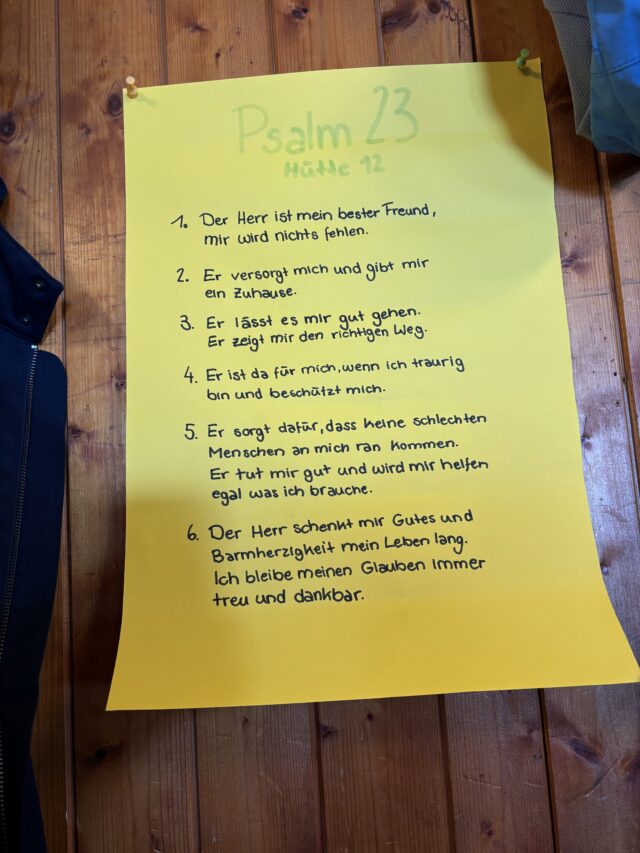 Psalm 23
Hütte 12
1. Der Herr ist mein bester Freund,
mir wird nichts fehlen.
2. Er versorgt mich und gibt mir
ein Zuhause.
3. Er lässt es mir gut gehen.
Er zeigt mir den richtigen Weg.
4. Er ist da für mich, wenn ich traurig
bin und beschützt mich.
5. Er sorgt dafür, dass keine schlechten
Menschen an mich ran kommen.
Er tut mir gut und wird mir helfen
egal was ich brauche.
6. Der Herr schenkt mir Gutes und
Barmherzigkeit mein Leben lang.
Ich bleibe meinen Glauben immer
treu und dankbar.